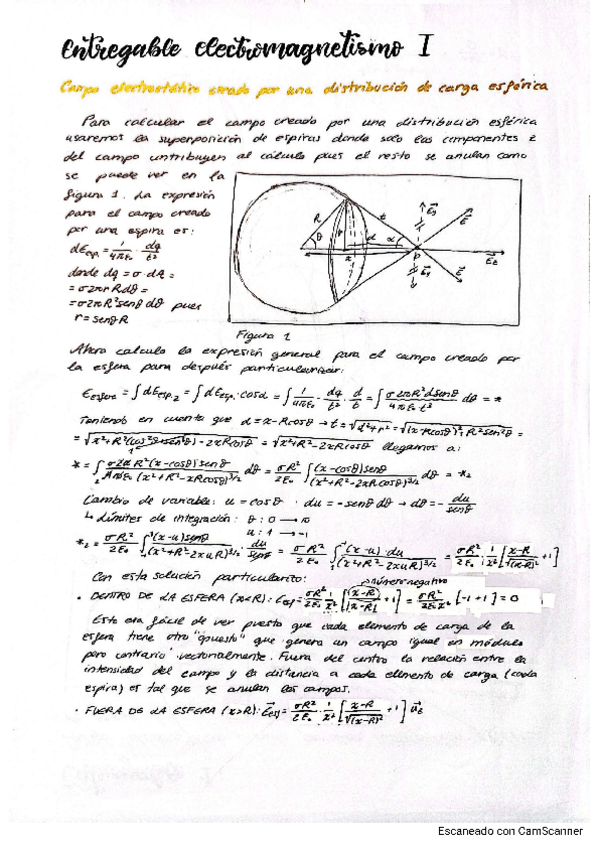 Entregable electromagnetismo I
Campo electrostático creado por una distribución de carga esférica
Para calcular el campo creado por una distribución esférica
usaremos la superposición de espiras donde solo las componentes z
del campo contribuyen al cálculo pues el resto se anulan como
se puede ver en la
figura 1. La expresión
para el campo creado
por una espira es:
dE_esp. = 1/4πε₀ · dq/t²
donde dq = σ·dA =
= σ2πrRdθ =
= σ2πR²senθdθ pues
r = senθR
R
θ
r
t
d
α
z
P
E⃗y
E⃗
E⃗z
E⃗y
E⃗
Figura 1
Ahora calculo la expresión general para el campo creado por
la esfera para después particularizar:
E_esfera = ∫dE_esp.z = ∫dE_esp.·cosα = ∫ 1/4πε₀ · dq/t² · d/t = ∫ σ2πR²dsenθ/4πε₀t³ dθ = *
Teniendo en cuenta que d = x-Rcosθ → t = √d²+r² = √(x-Rcosθ)²+R²sen²θ =
= √x²+R²(cos²θ+sen²θ)-2xRcosθ = √x²+R²-2xRcosθ llegamos a:
* = ∫ σ2πR²(x-cosθ)senθ/4πε₀(x²+R²-xRcosθ)^3/2 dθ = σR²/2ε₀ ∫ (x-cosθ)senθ/(x²+R²-2xRcosθ)^3/2 dθ = *₂
Cambio de variable: u = cosθ · du = -senθdθ → dθ = -du/senθ
↳ Límites de integración: θ: 0 → π
u: 1 → -1
*₂ = σR²/2ε₀ ∫₁⁻¹ (x-u)senθ/(x²+R²-2xuR)^3/2 · du/senθ = σR²/2ε₀ ∫₁⁻¹ (x-u)·du/(x²+R²-2xuR)^3/2 = σR²/2ε₀ · 1/x² [x-R/√(x-R)² +1]
Con esta solución particularizo:
→número negativo
· DENTRO DE LA ESFERA (x<R): E_esf = σR²/2ε₀ · 1/x² [x-R/|x-R| +1] = σR²/2ε₀x² · [-1+1] = 0
Esto era fácil de ver puesto que cada elemento de carga de la
esfera tiene otro "opuesto" que genera un campo igual en módulo
pero contrario vectorialmente. Fuera del centro la relación entre la
intensidad del campo y la distancia a cada elemento de carga (cada
espira) es tal que se anulan los campos.
· FUERA DE LA ESFERA (x>R): E⃗_esf = σR²/2ε₀ · 1/x² [x-R/√(x-R)² +1] u⃗z
Escaneado con CamScanner